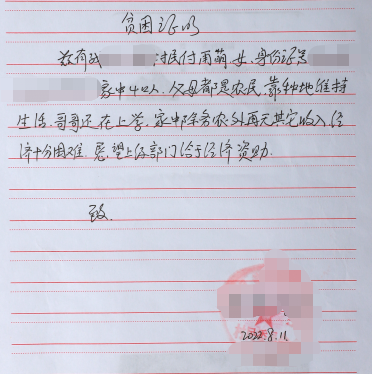 贫困证明
兹有我 村民付雨萌 女、身份证号
家中4口人、父母都是农民、靠种地维持
生活、哥哥还在上学、家中除务农外再无其它收入经
济十分困难、愿望上级部门给于经济资助.
致.
2022.8.11